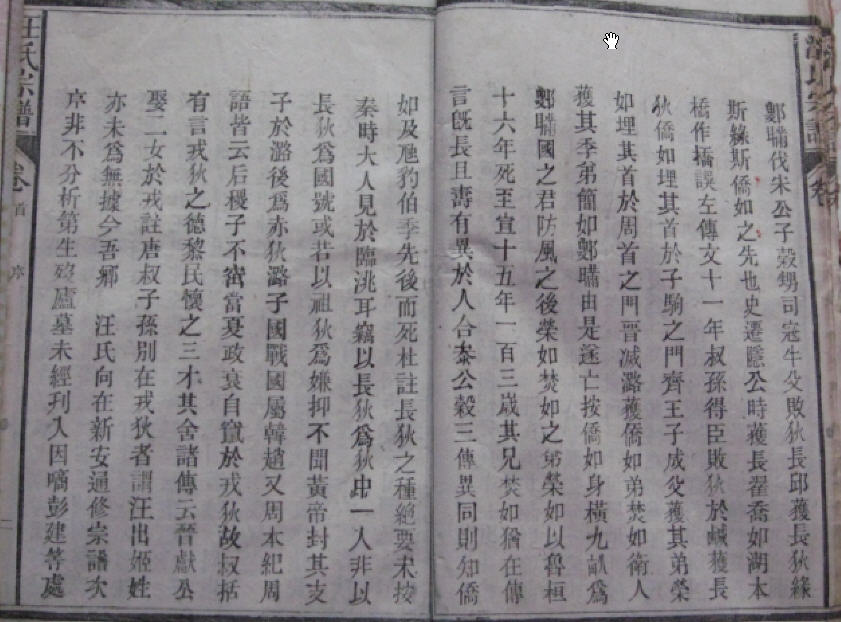 鄭瞞伐宋公子穀甥司寇牛父敗狄長邱獲長狄緣
斯緣斯僑如之先也史遷隱公時獲長翟喬如湖本
橋作搚誤左傳文十一年叔孫得臣敗狄於鹹獲長
狄僑如埋其首於子駒之門齊王子成父獲其弟榮
如埋其首於周首之門晉滅潞獲僑如弟焚如衛人
獲其季弟簡如鄭瞞由是遂亡按僑如身橫九畝為
鄭瞞國之君防風之後榮如焚如之弟榮如以魯桓
十六年死至宣十五年一百三歲其兄焚如猶在傳
言旣長且壽有異於人合叅公穀三傳異同則知僑
如及虺豹伯季先後而死杜註長狄之種絕要未按
秦時大人見於臨洮耳竊以長狄爲狄中一人非以
長狄爲國號或若以祖狄爲嫌抑不聞黃帝封其支
子於潞後爲赤狄潞子國戰國屬韓趙又周本紀周
語皆云后稷子不窋當夏政衰自竄於戎狄故叔括
有言戎狄之德黎民懷之三才其舍諸傳云晉獻公
娶二女於戎註唐叔子孫別在戎狄者謂汪出姬姓
亦未爲無據今吾鄉 汪氏向在新安通修宗譜次
序非不分析第生歿廬墓未經刊入因嘀彭建等處
汪氏宗譜
卷
首
序
二